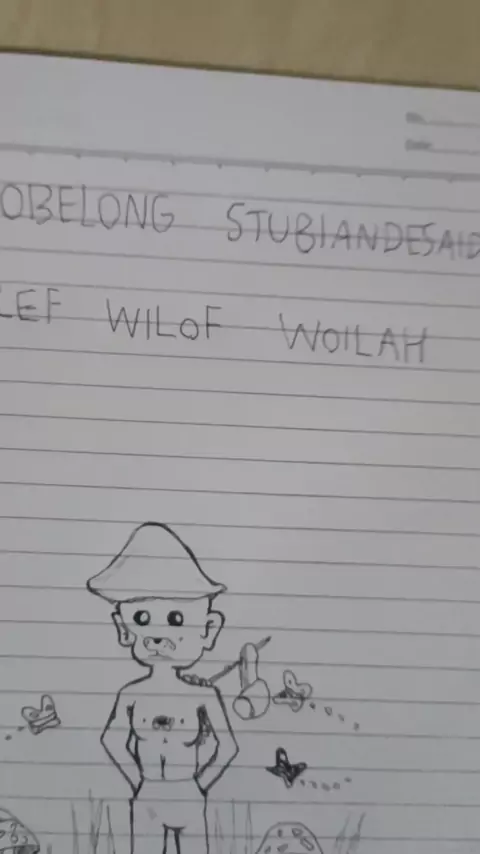 No.
Date
OBELONG STUBIANDESAID
LEF WILOF WOILAH